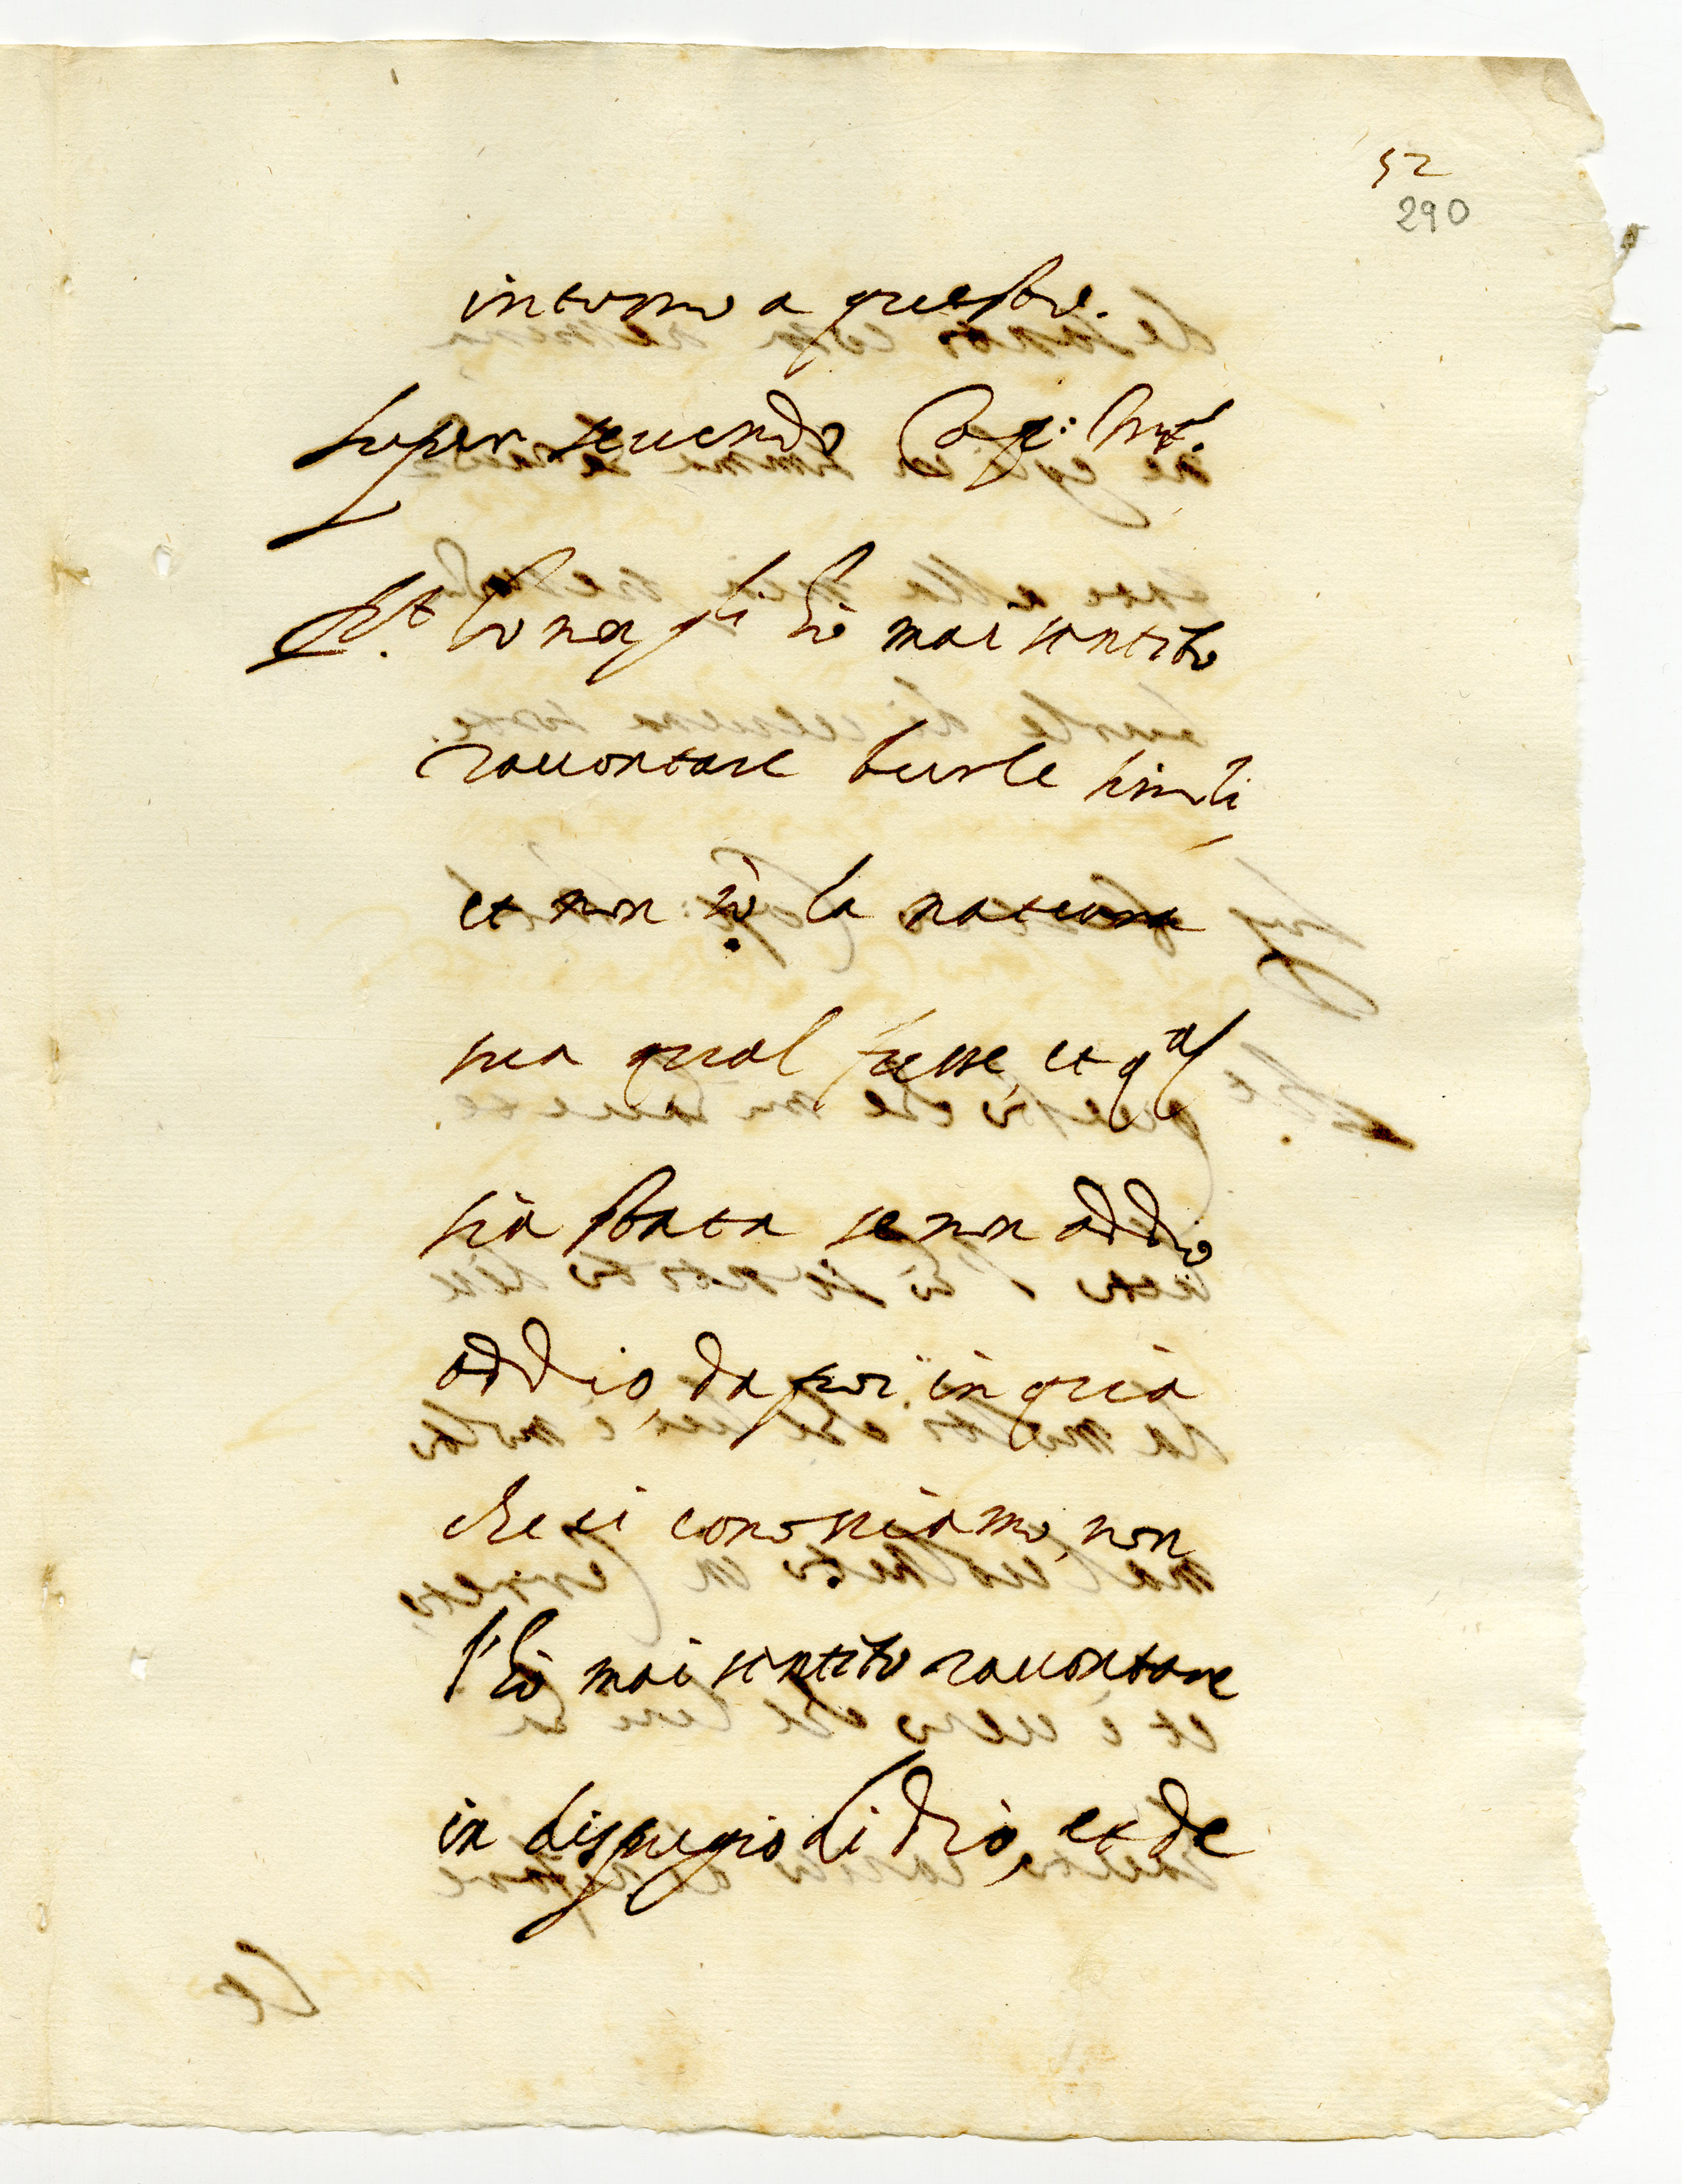 52
290
intorno a questo.
super secundo Cap: Int.
Rt. Io non gli hò mai sentito
raccontare burle simili,
et non sò la natura
sua qual fusse, et qual
sia stata se non addio
addio, da poi in quà
che ci conosciamo, non
l'hò mai sentito raccontare
in dispregio di Dio, et de